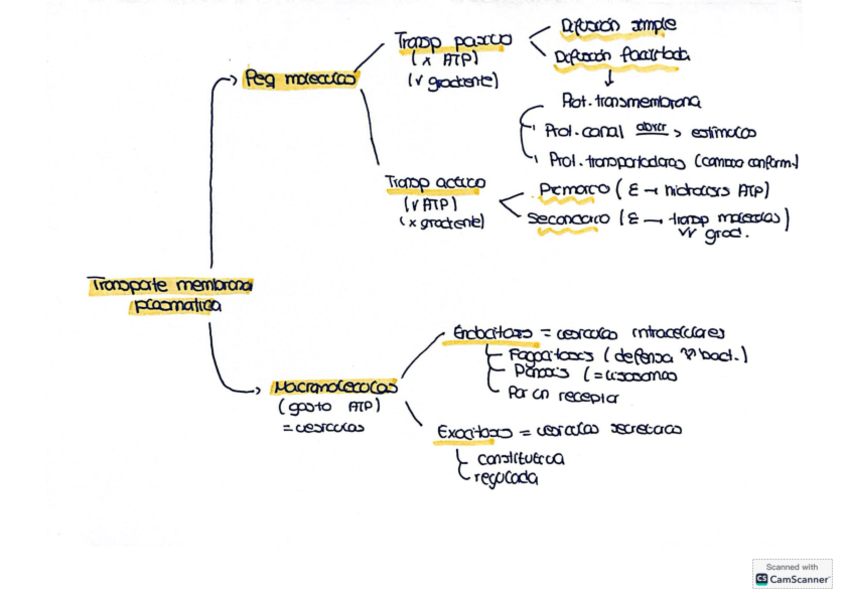 Transp pasivo
(x ATP)
(v gradiente)
Difusión simple
Difusión facilitada
Prot. transmembrana
Prot. canal abrir > estimulos
Prot. transportadoras (cambio conform.)
Peq moleculas
Transp activo
(v ATP)
(x gradiente)
Primario (E → hidrolisis ATP)
Secundario (E → transp moleculas)
grad.
Transporte membrana
plasmatica
Macromoleculas
(gasto ATP)
= vesiculas
Endocitosis = vesiculas intracelulares
Fagocitosis (defensa bact.)
(= lisosomas
Por un receptor
Exocitosis = vesiculas secretoras
constitutiva
regulada
Scanned with
CS CamScanner